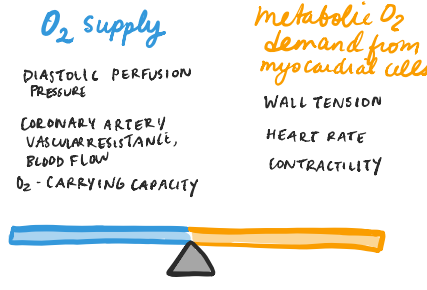 O2 supply
DIASTOLIC PERFUSION
PRESSURE
CORONARY ARTERY
VASCULAR RESISTANCE,
BLOOD FLOW
O2 - CARRYING CAPACITY
metabolic O2
demand from
myocardial cells
WALL TENSION
HEART RATE
CONTRACTILITY